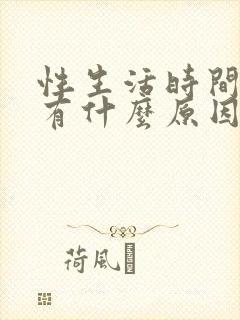 性生活時間
有什麼原因
荷風